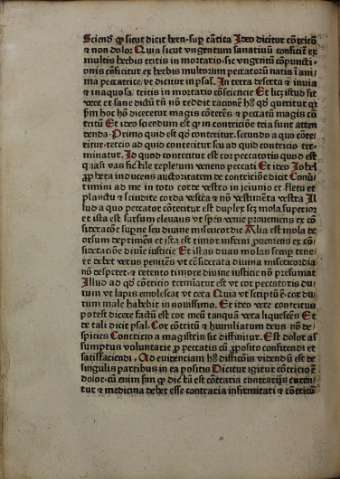 Sciendū qͥ sicut dicit bern̄ · suꝑ cātica Ideo dicitur cōtricō
⁊ non dolor Quia sicut vngentum sanatiuū conficit̄ ex
multis herbis tritis in mortario · sic vngentū cōpuncti⸗
onis cōficitur ex herbis multorum peccatoꝝ natis ī ani
ma peccatrice · vt dicitur in psal · In terra deserta ⁊ inuia
⁊ inaquosa · tritis in mortario cōscientie Et licet istud sit
vere et sane dictū tn̄ non reddit racionē
hoc dicretur magis cōtricō · ⁊ peccatū magis cō
tritū Et ideo sciendum est ꝙ in contricōne tria sunt atten
denda · Primo quid est qd̓ conteritur · secundo a quo cōte⸗
ritur · tercio ad quid conteritur seu ad quid contricio ter⸗
minatur · Id quod conteritur est cor peccatoris quod est
vas fictile repletum veneno peccati Et ideo Johel
ꝓpheta inducens auctoritatem de contricōne dicit Conū
timini ad me in toto corde vestro in ieiunio et fletu et
planctu ⁊ scindite corda vestra ⁊ nō vestimēta vestra Il
lud a quo peccator conteritur est duplex · mola superior
et ista est sursum eleuans vt spes venie proueniens ex cō
sideracōne superne seu diuine misericordie Alia est mola de
orsum deprimens et ista est timor inferni proueniens ex cō⸗
sideracōne diuine iusticie Et istas duas molas semp tene⸗
re debet verus penitēs vt cōsiderata diuina misericordia
nō desperet · ⁊ retento timore diuine iusticie nō presumat
Illud ad qd̓ contricio terminatur est vt cor peccatoris du⸗
rum vt lapis emolescat vt cera Quia vt scriptū ē · cor du⸗
rum male habebit in nouissimo · Et ideo vere contritus
potest dicere factū est cor meū tanquā vera liquescēs Et
de tali dicit psal · Cor cōtritū ⁊ humiliatum deus non de⸗
spicies Contricio a magistris sic diffinitur · Est dolor as
sumptus voluntarie ꝓ peccatis cū ꝓposito confitendi et
satisfaciendi · Ad euidenciam diffinicōnis videndū est de
singulis partibus in ea positis Dicitur igitur cōtricō ē
dolor · cū enim est cōtraria contrarijs curen⸗
tur ⁊ medicina debet esse contraria infirmitati ⁊ cōtricō